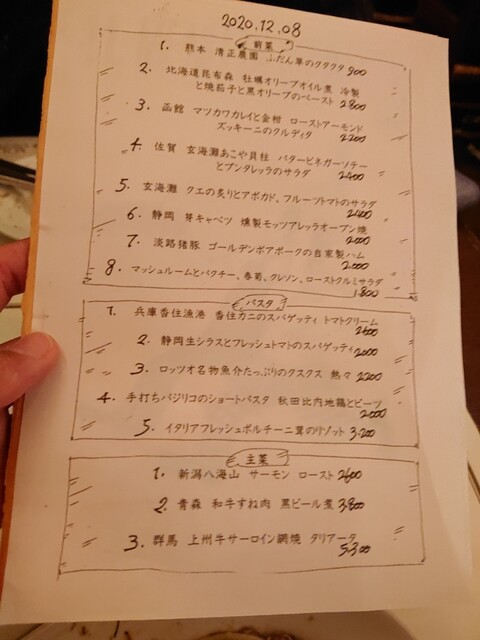 2020.12.08
前菜
1. 熊本 清正農園 ふだん草のクタクタ 900
2. 北海道昆布森 牡蠣オリーブオイル煮 冷製
と焼茄子と黒オリーブのペースト 2800
3. 函館 マツカワカレイと金柑 ローストアーモンド
ズッキーニのクルディタ 2200
4. 佐賀 玄海灘あこや貝柱 バタービネガーソテー
とプンタレッラのサラダ 2400
5. 玄海灘 クエの炙りとアボカド、フルーツトマトのサラダ
2400
6. 静岡 芽キャベツ 燻製モッツアレッラオーブン焼
2000
7. 淡路猪豚 ゴールデンボアポークの自家製ハム
2,000
8. マッシュルームとパクチー、春菊、クレソン、ローストクルミサラダ
1,800
パスタ
1. 兵庫香住漁港 香住カニのスパゲッティ トマトクリーム
2600
2. 静岡生シラスとフレッシュトマトのスパゲッティ 2000
3. ロッツオ名物魚介たっぷりのクスクス 熱々 2200
4. 手打ちバジリコのショートパスタ 秋田比内地鶏とビーツ
2000
5. イタリアフレッシュポルチーニ茸のリゾット 3,200
主菜
1. 新潟八海山 サーモン ロースト 2600
2. 青森 和牛すね肉 黒ビール煮 3,800
3. 群馬 上州牛サーロイン網焼 タリアータ
5,300